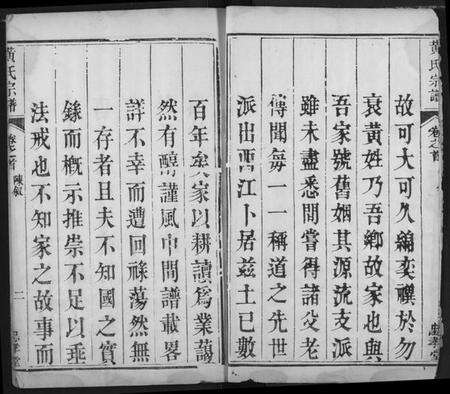 黃氏宗譜
卷之首
故可大可久綿奕禩於勿
衰黃姓乃吾鄉故家也與
吾家號舊姻其源流支派
雖未盡悉間嘗得諸父老
傳聞每一一稱道之先世
派出西江卜居兹土已數
百年矣家以耕讀爲業藹
然有醇謹風中間譜載畧
詳不幸而遭回祿蕩然無
一存者且夫不知國之實
錄而概示推崇不足以垂
法戒也不知家之故事而
黃氏宗譜
卷之首
陳敘
二
忠孝堂